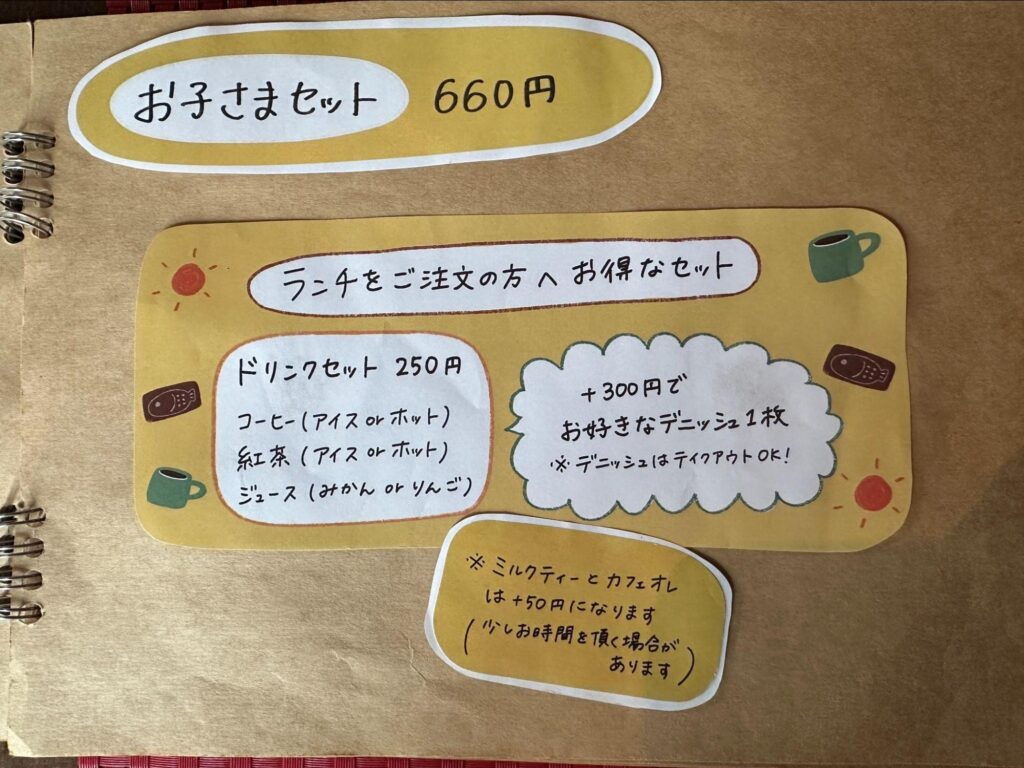 お子さまセット 660円
ランチをご注文の方へ お得なセット
ドリンクセット 250円
コーヒー(アイス or ホット)
紅茶(アイス or ホット)
ジュース(みかん or りんご)
+300円で
お好きなデニッシュ1枚
※デニッシュはテイクアウトOK!
※ミルクティーとカフェオレ
は+50円になります
(少しお時間を頂く場合が
あります)